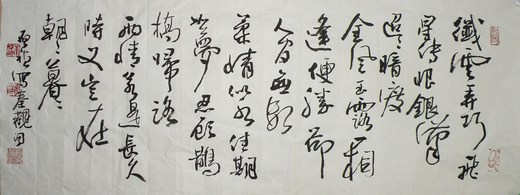 纖雲弄巧飛
星傳恨銀漢
迢〻暗度
金風玉露一相
逢便勝卻
人間無數
柔情似水佳期
如夢忍顧鵲
橋歸路
兩情若是長久
時又豈在
朝〻暮〻
寫秦觀詞